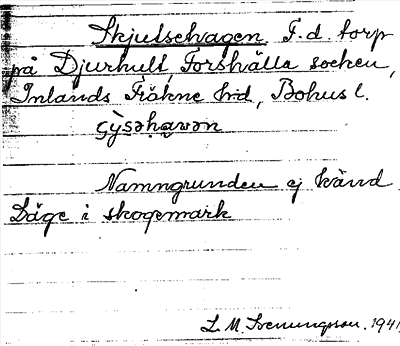 Skjulsehagen F.d. torp
på Djurhult, Forshälla socken,
Inlands Fräkne hd, Bohus l.
Namngrunden ej känd
Läge i skogsmark
L. M. Svenungsson. 1941